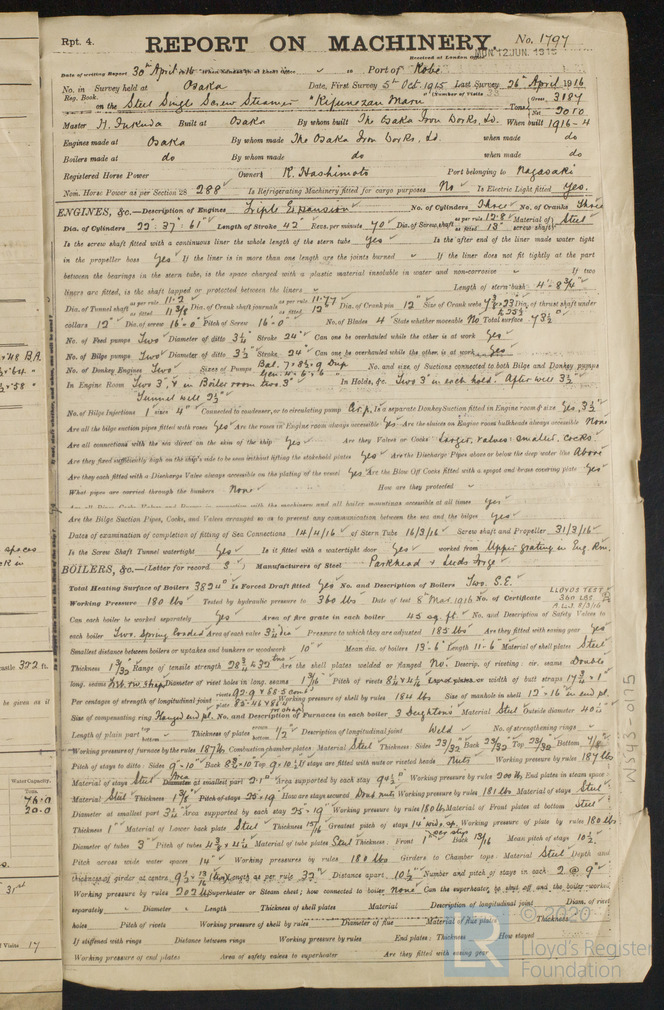 Rpt. 4.
REPORT ON MACHINERY.
No. 1797
Received at London Office MON. 12 JUN. 1916
Date of writing Report 30th April 1916 When handed in at Local Office Port of Kobe
No. in Survey held at Osaka Date, First Survey 5th Oct. 1915 Last Survey 26th April 1916
Reg. Book. (Number of Visits 33
on the Steel Single Screw Steamer "Kifunezan Maru" Tons Gross 3187 Net 2010
Master Built at Osaka By whom built The Osaka Iron Works, Ld. When built 1916-4
Engines made at Osaka By whom made The Osaka Iron Works, Ld. when made do
Boilers made at do By whom made do when made do
Registered Horse Power Owners K. Hashimoto Port belonging to Nagasaki
Nom. Horse Power as per Section 28 288 Is Refrigerating Machinery fitted for cargo purposes No Is Electric Light fitted Yes.
ENGINES, &c.—Description of Engines Triple Expansion No. of Cylinders Three No. of Cranks Three
Dia. of Cylinders 22" : 37" : 61" Length of Stroke 42" Revs. per minute 70 Dia. of Screw shaft as per rule 12.8" as fitted 13" Material of screw shaft Steel
Is the screw shaft fitted with a continuous liner the whole length of the stern tube Yes Is the after end of the liner made water tight
in the propeller boss Yes If the liner is in more than one length are the joints burned If the liner does not fit tightly at the part
between the bearings in the stern tube, is the space charged with a plastic material insoluble in water and non-corrosive If two
liners are fitted, is the shaft lapped or protected between the liners Length of stern bush 4'-8 3/4"
Dia. of Tunnel shaft as per rule 11.2 as fitted 11 3/8 Dia. of Crank shaft journals as per rule 11.77 as fitted 12" Dia. of Crank pin 12" Size of Crank webs Dia. of thrust shaft under
collars 12" Dia. of screw 16'-0" Pitch of Screw 16'-0" No. of Blades 4 State whether moveable No Total surface 73 1/2
No. of Feed pumps Two Diameter of ditto 3 1/2 Stroke 24" Can one be overhauled while the other is at work Yes
No. of Bilge pumps Two Diameter of ditto 3 1/2 Stroke 24" Can one be overhauled while the other is at work Yes
No. of Donkey Engines Two Sizes of Pumps No. and size of Suctions connected to both Bilge and Donkey pumps
In Engine Room Two 3", & in Boiler room two 3" In Holds, &c. Two 3" in each hold. After well 3 1/2
Tunnel well 2 1/2"
No. of Bilge Injections 1 sizes 4" Connected to condenser, or to circulating pump Cir. p. Is a separate Donkey Suction fitted in Engine room & size Yes, 3 1/2"
Are all the bilge suction pipes fitted with roses Yes Are the roses in Engine room always accessible Yes Are the sluices on Engine room bulkheads always accessible None
Are all connections with the sea direct on the skin of the ship Yes Are they Valves or Cocks Larger, valves: smaller, cocks.
Are they fixed sufficiently high on the ship's side to be seen without lifting the stokehold plates Yes Are the Discharge Pipes above or below the deep water line Above
Are they each fitted with a Discharge Valve always accessible on the plating of the vessel Yes Are the Blow Off Cocks fitted with a spigot and brass covering plate Yes
What pipes are carried through the bunkers None How are they protected
Are all Pipes, Cocks, Valves and Pumps in connection with the machinery and all boiler mountings accessible at all times Yes
Are the Bilge Suction Pipes, Cocks, and Valves arranged so as to prevent any communication between the sea and the bilges Yes
Dates of examination of completion of fitting of Sea Connections 14/4/16 of Stern Tube 16/3/16 Screw shaft and Propeller 31/3/16
Is the Screw Shaft Tunnel watertight Yes Is it fitted with a watertight door Yes worked from Upper grating in Eng. Rm.
BOILERS, &c.—(Letter for record S) Manufacturers of Steel Parkhead & Leeds Forge
Total Heating Surface of Boilers 3824 Is Forced Draft fitted Yes No. and Description of Boilers Two. S.E.
LLOYD'S TEST 360 LBS. A.L.J. 8/3/16
Working Pressure 180 lbs Tested by hydraulic pressure to 360 lbs Date of test 8th Mar. 1916 No. of Certificate
Can each boiler be worked separately Yes Area of fire grate in each boiler 45 sq. ft. No. and Description of Safety Valves to
each boiler Two. Spring loaded Area of each valve 3 1/4 dia Pressure to which they are adjusted 185 lbs Are they fitted with easing gear Yes
Smallest distance between boilers or uptakes and bunkers or woodwork 10" Mean dia. of boilers 13'-6" Length 11'-6" Material of shell plates Steel
Thickness 1 3/32 Range of tensile strength 28 3/4 & 32 tons Are the shell plates welded or flanged No. Descrip. of riveting: cir. seams Double
long. seams Diameter of rivet holes in long. seams 1 3/16 Pitch of rivets Lap of plates or width of butt straps
Per centages of strength of longitudinal joint rivets plate Working pressure of shell by rules 184 lbs Size of manhole in shell 12" x 16" in end pl.
Size of compensating ring Flanged end pl. No. and Description of Furnaces in each boiler 3 Deightons Material Steel Outside diameter
Length of plain part top bottom Thickness of plates 1/2" Description of longitudinal joint Weld No. of strengthening rings
Working pressure of furnace by the rules 187 lbs Combustion chamber plates: Material Steel Thickness: Sides 23/32 Back 23/32 Top 23/32 Bottom 7/8
Pitch of stays to ditto: Sides Back Top If stays are fitted with nuts or riveted heads Nuts Working pressure by rules 187 lbs
Material of stays Steel Area at smallest part 2.1 Area supported by each stay Working pressure by rules 200 lbs End plates in steam space:
Material Steel Thickness Pitch of stays 25 x 19 How are stays secured Dou. nuts Working pressure by rules 181 lbs Material of stays Steel
Diameter at smallest part Area supported by each stay 25 x 19 Working pressure by rules 180 lbs Material of Front plates at bottom Steel
Thickness 1" Material of Lower back plate Steel Thickness 15/16 Greatest pitch of stays Working pressure of plate by rules 180 lbs
Diameter of tubes 3" Pitch of tubes Material of tube plates Steel Thickness: Front Back 13/16 Mean pitch of stays 10 1/2
Pitch across wide water spaces 14" Working pressures by rules 180 lbs Girders to Chamber tops: Material Steel Depth and
thickness of girder at centre Length as per rule Distance apart 10 1/2 Number and pitch of stays in each 2 @ 9"
Working pressure by rules 202 lbs Superheater or Steam chest; how connected to boiler None Can the superheater be shut off and the boiler worked
separately Diameter Length Thickness of shell plates Material Description of longitudinal joint Diam. of rivet
holes Pitch of rivets Working pressure of shell by rules Diameter of flue Material of flue plates Thickness
If stiffened with rings Distance between rings Working pressure by rules End plates: Thickness How stayed
Working pressure of end plates Area of safety valves to superheater Are they fitted with easing gear
W543-0175
LR © 2020
Lloyd's Register
Foundation
Water Capacity.
Tons.
76.0
20.0
Visits 17